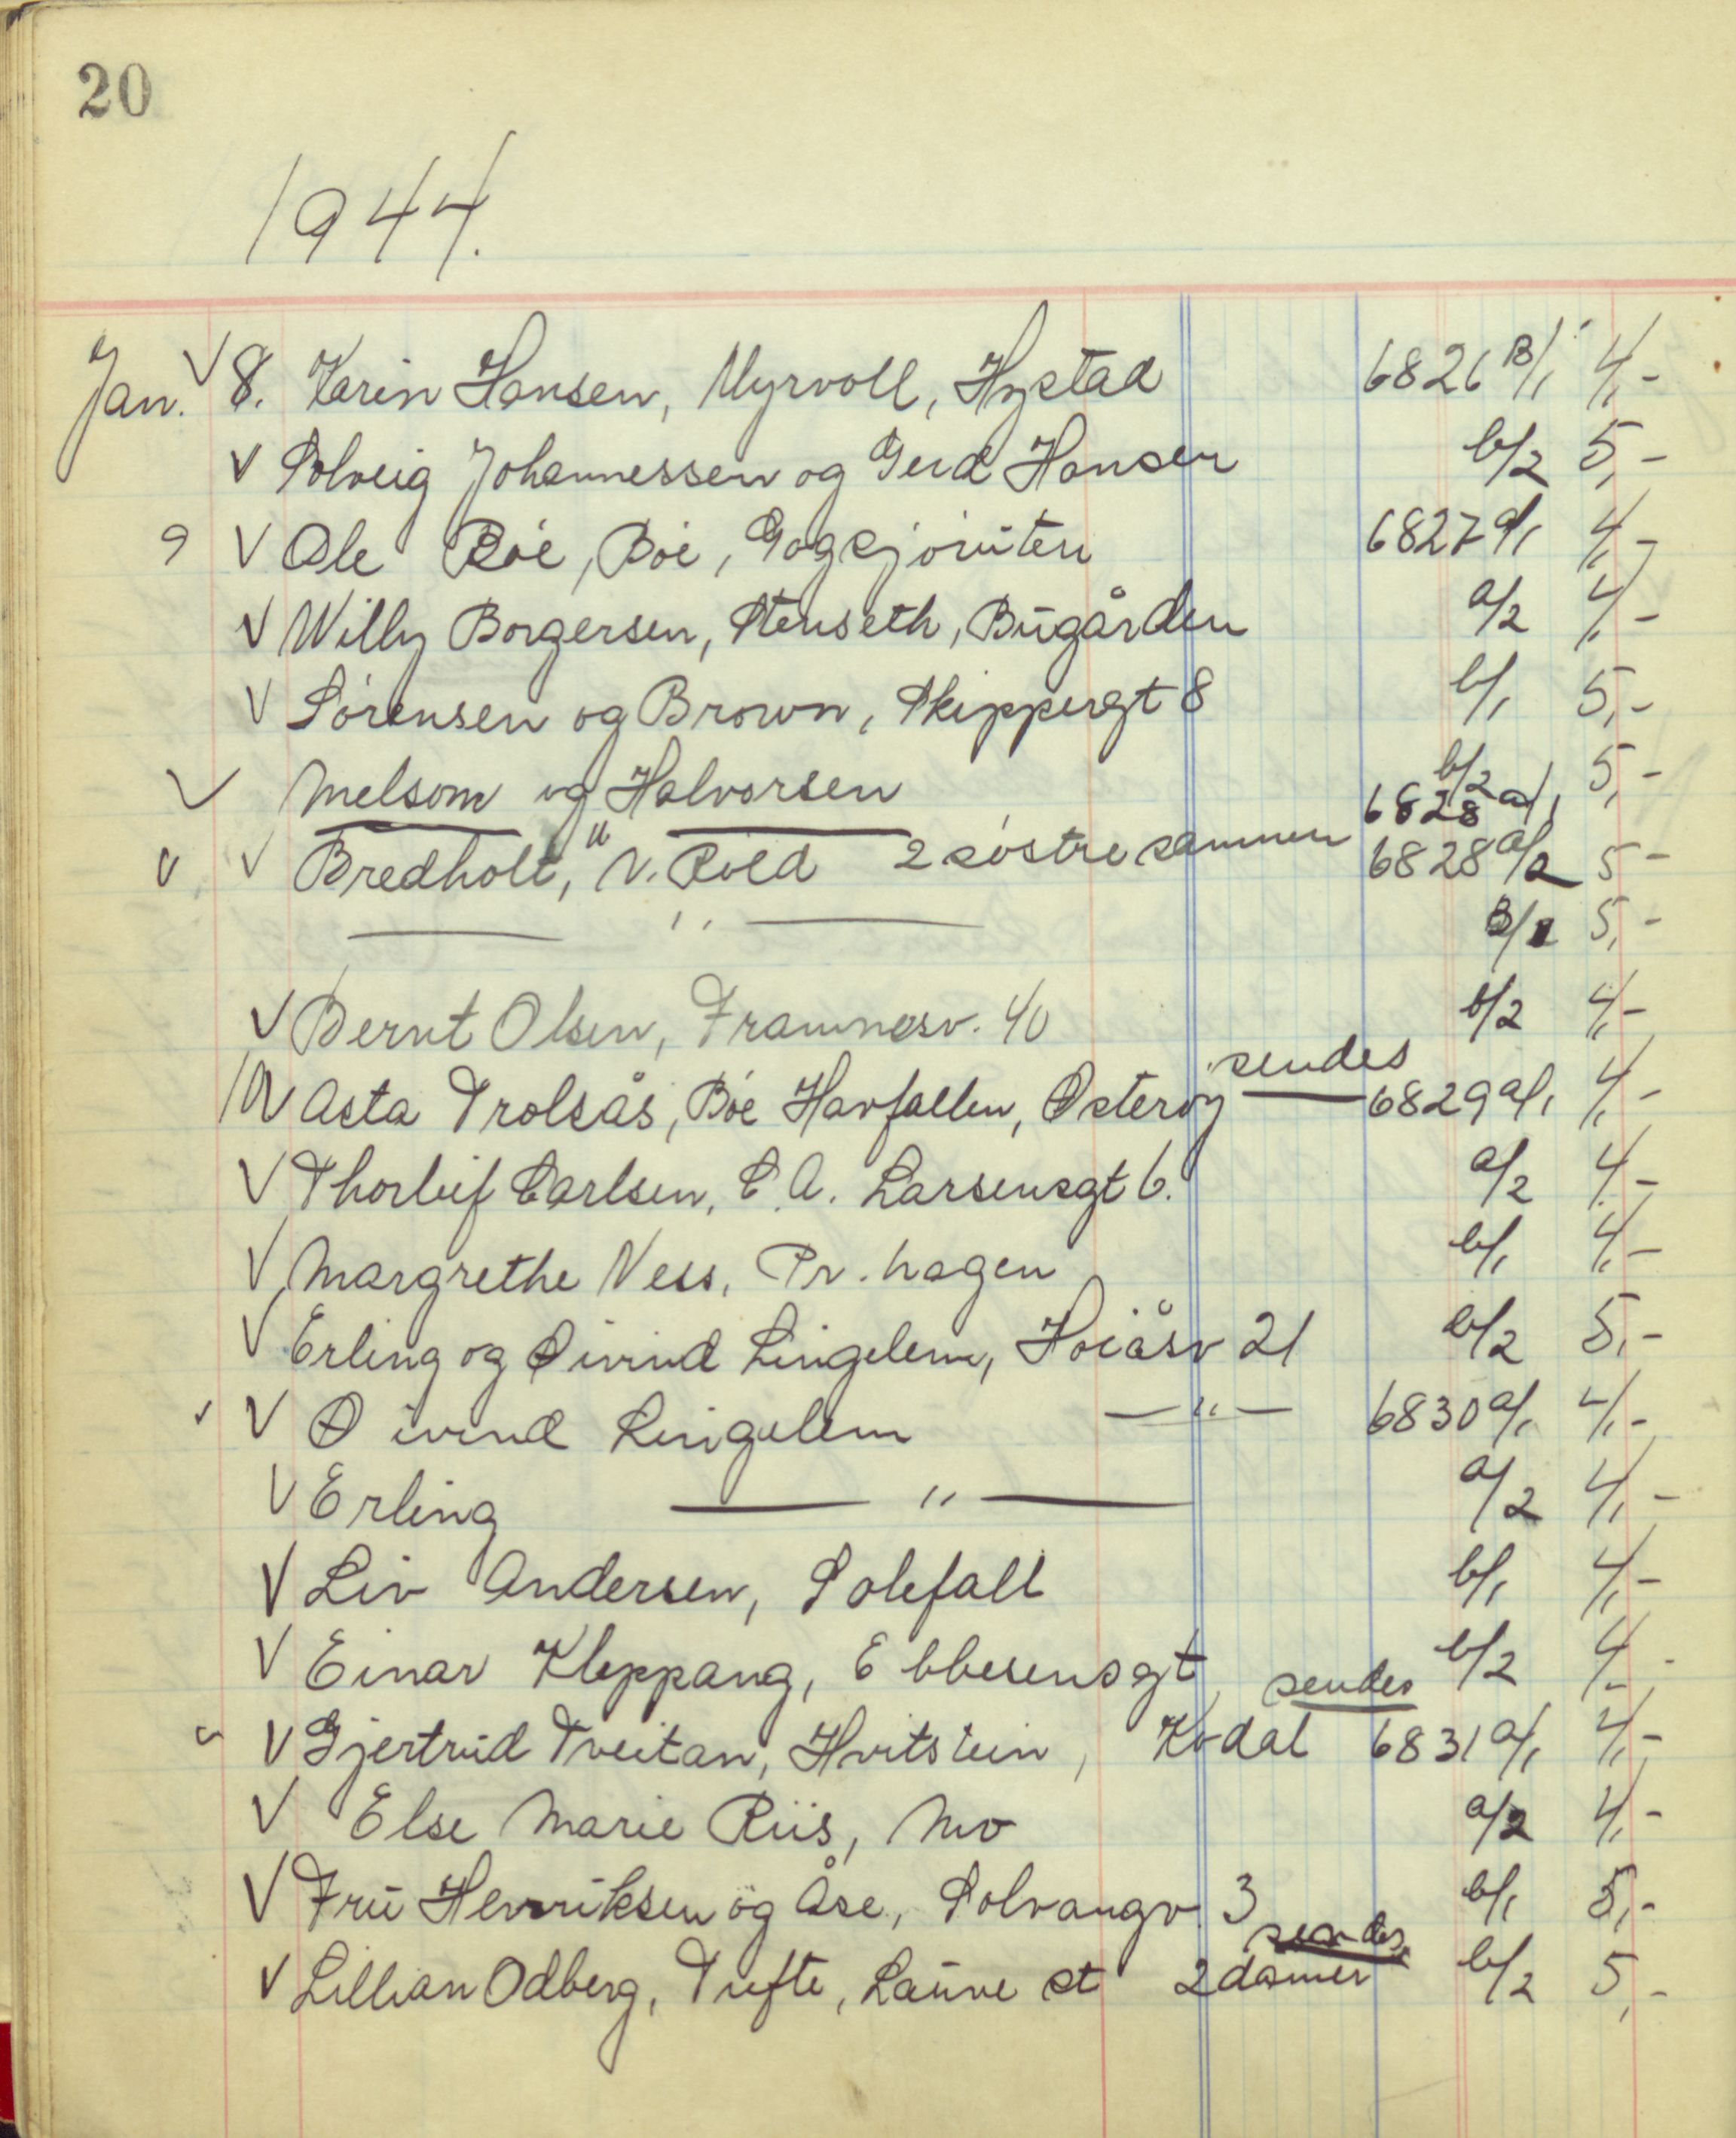 20
1944.
Jan. √ 8. Karin Hansen, Myrvoll, Hystad 6826 B/1 4,-
√ Solveig Johannessen og Gerd Hansen b/2 5,-
9 √ Ole Bøe, Bøe, Gogsjøruten 6827 a/1 4,-
√ Willy Borgersen, Stenseth, Bugården a/2 4,-
√ Sørensen og Brown, Skippergt 8 b/1 5,-
√ Melsom og Halvorsen b/2 5,-
— " — 6828 a/1
√ √ Bredholt, N. Roed 2 søstre sammen 6828 a/2 5-
— " — B/1 5,-
√ Bernt Olsen, Framnesv. 40 b/2 4,-
sendes
10 √ Asta Trolsås, Bøe Havfallen, Østerøy — 6829 a/1 4,-
√ Thorleif Carlsen, C. A. Larsensgt 6. a/2 4,-
√ Margrethe Ness, Pr. hagen b/1 4,-
√ Erling og Øivind Lingelem, Høiåsv 21 b/2 5,-
√ √ Øivind Lingelem — " — 6830 a/1 4,-
√ Erling — " — a/2 4,-
√ Liv Andersen, Solefall b/1 4,-
√ Einar Kleppang, Ebbesensgt b/2 4,-
sendes
√ √ Gjertrud Tveitan, Hvitstein, Kodal 6831 a/1 4,-
√ Else Marie Riis, Mo a/2 4,-
√ Fru Henriksen og Åse, Solvangv. 3 b/1 5,-
sendes
√ Lillian Odberg, Tufte, Lauve st 2 damer b/2 5,-